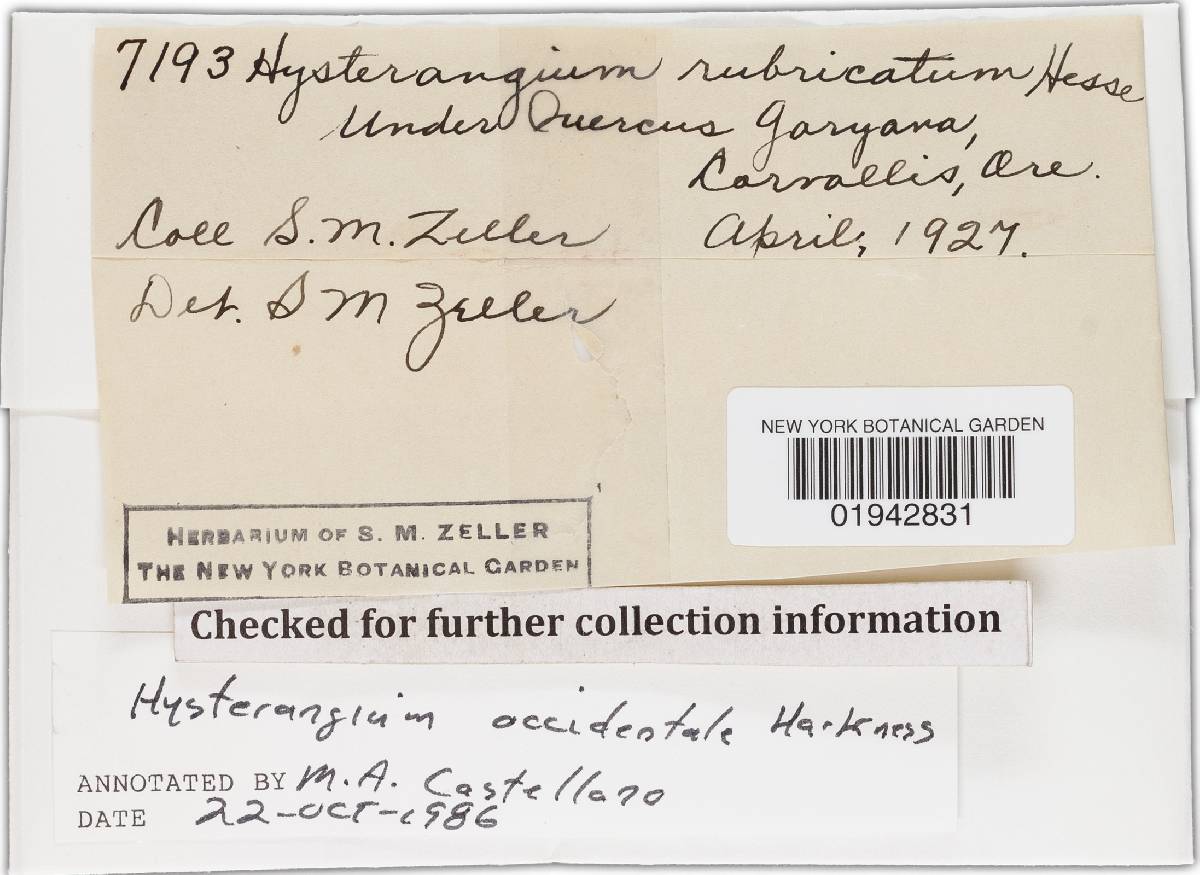 7193 Hysterangium rubricatum Hesse
Under Quercus Garyana,
Corvallis, Ore.
Coll S. M. Zeller April, 1927.
Det. S M Zeller
NEW YORK BOTANICAL GARDEN
01942831
HERBARIUM OF S. M. ZELLER
THE NEW YORK BOTANICAL GARDEN
Checked for further collection information
Hysterangium occidentale Harkness
ANNOTATED BY M. A. Castellano
DATE 22-OCT-1986